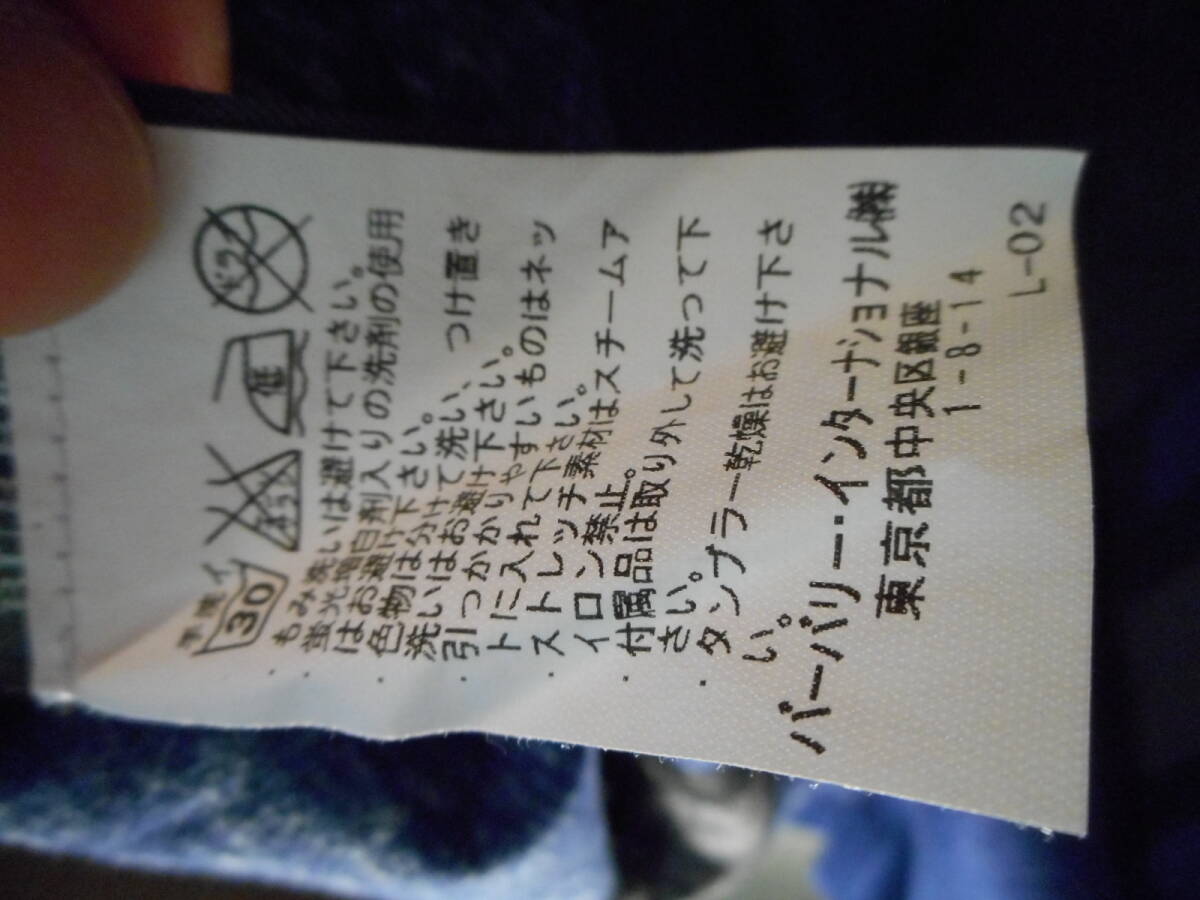 手洗イ
30
エンソサラシ
低
もみ洗いは避けて下さい。
蛍光増白剤入りの洗剤の使用
はお避け下さい。
色物は分けて洗い、つけ置き
洗いはお避け下さい。
引っかかりやすいものはネッ
トに入れて下さい。
ストレッチ素材はスチームア
イロン禁止。
付属品は取り外して洗って下
さい。
タンブラー乾燥はお避け下さ
い。
バーバリー・インターナショナル㈱
東京都中央区銀座
1-8-14
L-02